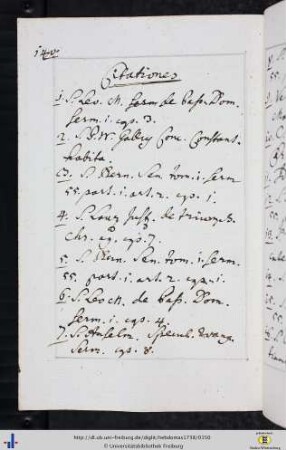 140.
Citationes
1. S. Leo. M. serm. de pass. Dom.
serm. 1. cap. 3.
2. Conc. Constant.
habita.
3. S. Bern. Sen. tom. 1. serm
55. part. 1. art. 2. cap. 1.
4. S. Laur. Just. de
Chr. cap. 7.
5. S. Bern. Sen. tom. 1. serm.
55. part. 1. art. 2. cap. 1.
6. S. Leo M. de pass. Dom.
serm. 1. cap. 4.
7. S. Anselm. Specul. Evang.
Serm. cap. 8.
http://dl.ub.uni-freiburg.de/diglit/hebdomas1738/0300
© Universitätsbibliothek Freiburg